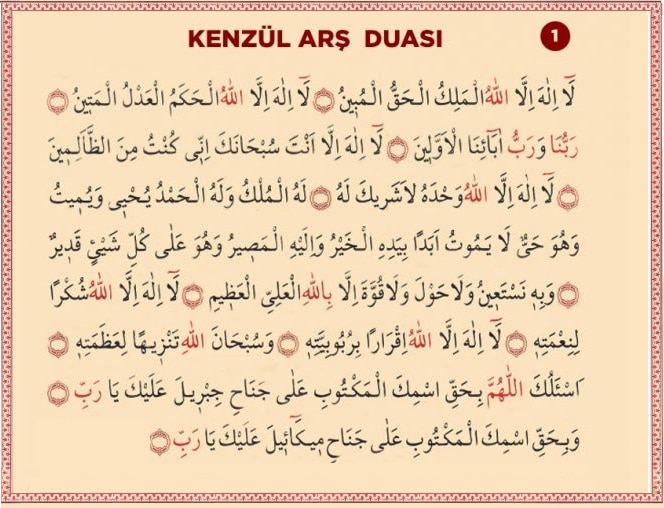 KENZÜL ARŞ DUASI 1
لَٓا اِلٰهَ اِلَّا اللهُ الْمَلِكُ الْحَقُّ الْمُبٖينُ ۝ لَٓا اِلٰهَ اِلَّا اللهُ الْحَكَمُ الْعَدْلُ الْمَتٖينُ ۝
رَبُّنَا وَرَبُّ اٰبَٓائِنَا الْاَوَّلٖينَ ۝ لَٓا اِلٰهَ اِلَّا اَنْتَ سُبْحَانَكَ اِنّٖى كُنْتُ مِنَ الظَّالِمٖينَ
۝ لَٓا اِلٰهَ اِلَّا اللهُ وَحْدَهُ لَاشَرٖيكَ لَهُ ۝ لَهُ الْمُلْكُ وَلَهُ الْحَمْدُ يُحْيٖى وَيُمٖيتُ
وَهُوَ حَىٌّ لَا يَمُوتُ اَبَدًا بِيَدِهِ الْخَيْرُ وَاِلَيْهِ الْمَصٖيرُ وَهُوَ عَلٰى كُلِّ شَيْئٍ قَدٖيرٌ
۝ وَبِهٖ نَسْتَعٖينُ وَلَا حَوْلَ وَلَا قُوَّةَ اِلَّا بِاللهِ الْعَلِىِّ الْعَظٖيمِ ۝ لَٓا اِلٰهَ اِلَّا اللهُ شُكْرًا
لِنِعْمَتِهٖ ۝ لَٓا اِلٰهَ اِلَّا اللهُ اِقْرَارًا بِرُبُوبِيَّتِهٖ ۝ وَسُبْحَانَ اللهِ تَنْزٖيهًا لِعَظَمَتِهٖ ۝
اَسْئَلُكَ اللّٰهُمَّ بِحَقِّ اسْمِكَ الْمَكْتُوبِ عَلٰى جَنَاحِ جِبْرٖيلَ عَلَيْكَ يَا رَبِّ ۝
وَبِحَقِّ اسْمِكَ الْمَكْتُوبِ عَلٰى جَنَاحِ مٖيكَٓائٖيلَ عَلَيْكَ يَا رَبِّ ۝